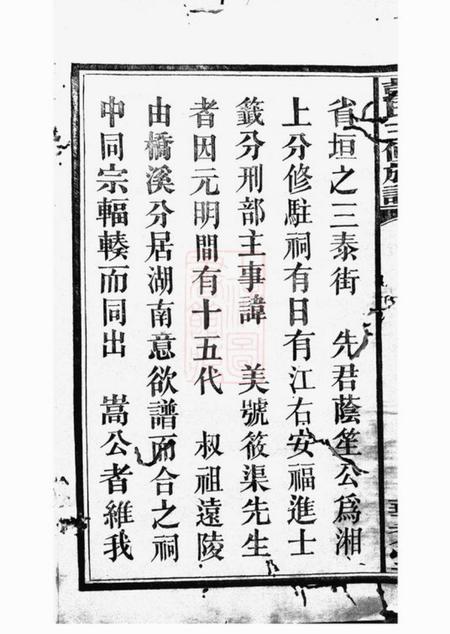 省垣之三泰街　先君蔭笙公爲湘
上分修駐祠有日有江右安福進士
籖分刑部主事諱　美號筱渠先生
者因元明間有十五代　叔祖遠陵
由橋溪分居湖南意欲譜而合之祠
中同宗輻輳而同出　嵩公者維我